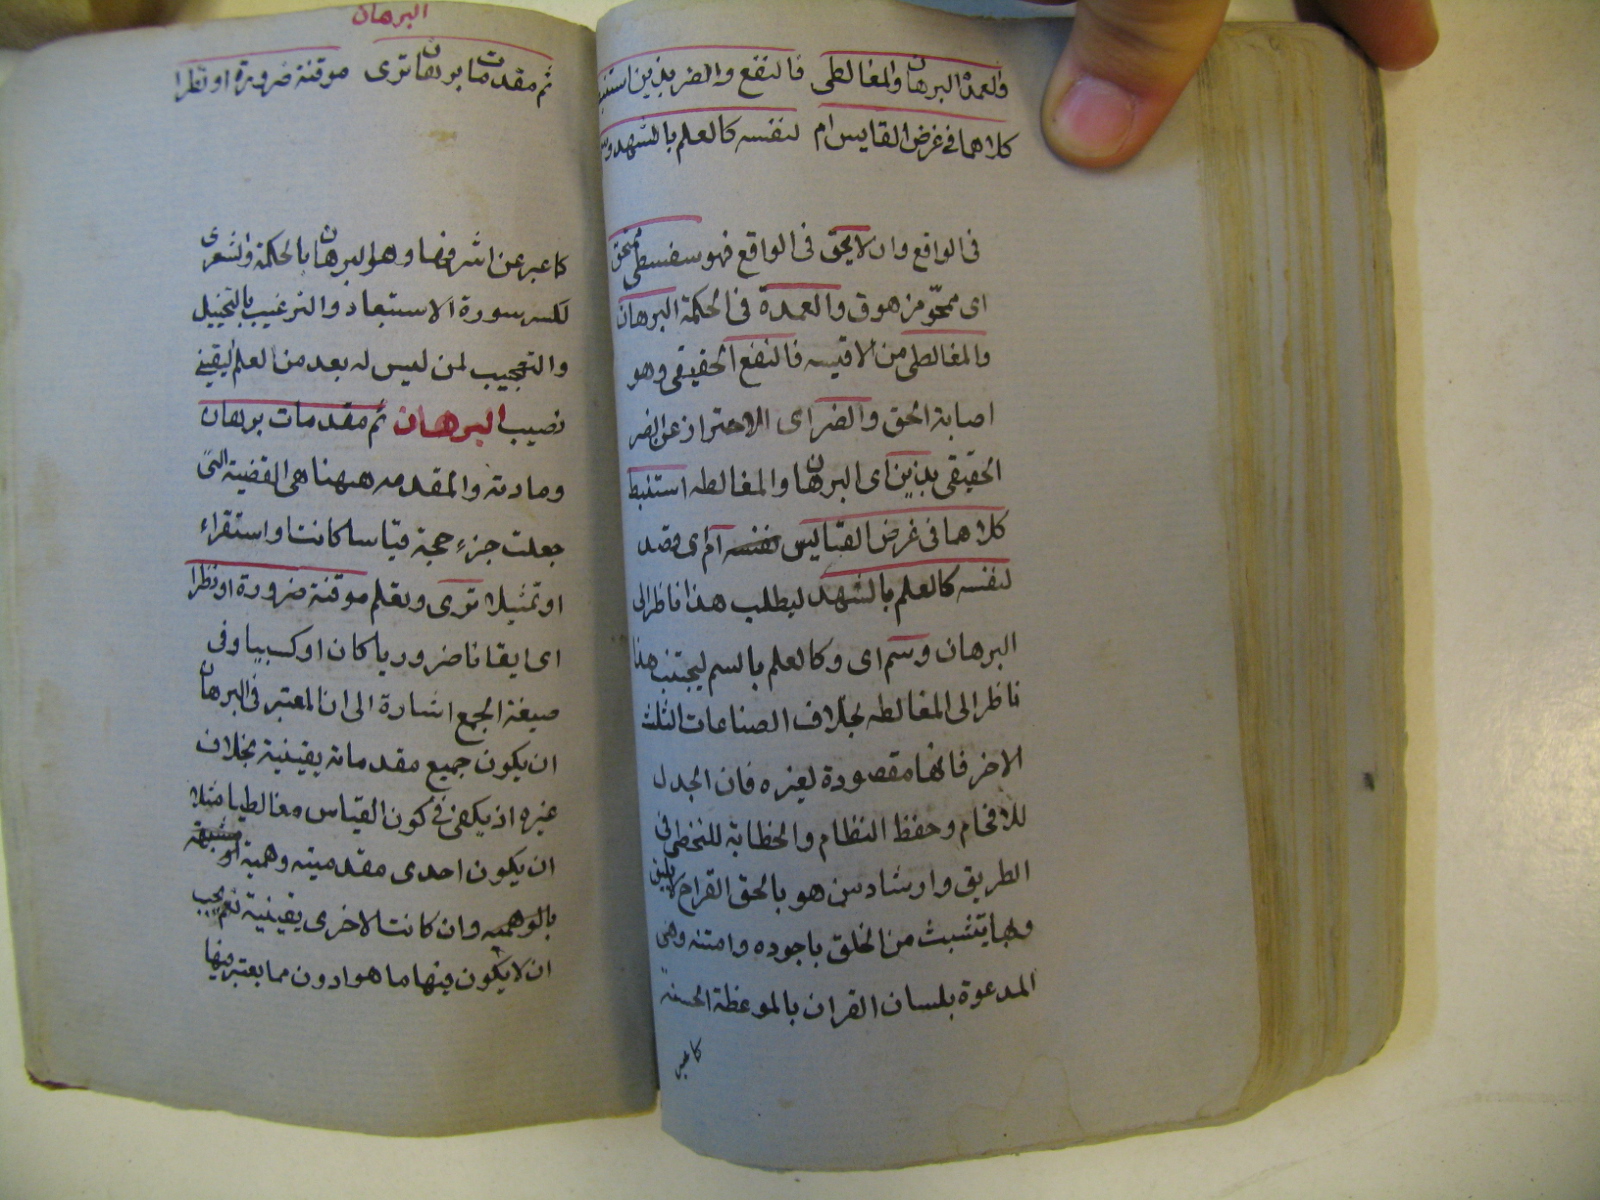 والعمدة البرهان والمغالطى فالنفع والضر بذين استنبط
كلاهما فى غرض القايس ام لنفسه كالعلم بالشهد وسم
فى الواقع وان لا يحق فى الواقع فهو سفسطى ممتحق
اى ممحوّ مزهوق والعمدة فى الحكمة البرهان
والمغالطى من الاقيسه فالنفع الحقيقى وهو
اصابة الحق والضر اى الاحتراز عن الضر
الحقيقى بذين اى البرهان والمغالطه استنبط
كلاهما فى غرض القايس ام اى قصد
لنفسه كالعلم بالشهد ليطلب هذا ناظر الى
البرهان وسم اى وكالعلم بالسم ليجتنب هذا
ناظر الى المغالطه بخلاف الصناعات الثلث
الاخر فانها مقصودة لغيره فان الجدل
للافحام وحفظ النظام والخطابة للتخطى فى
الطريق وارشاد من هو بالحق القراح لا يليق
وبها يتشبث من الخلق باجوده وامتنه وهى
المدعوة بلسان القران بالموعظة الحسنه
كما عبر
البرهان
ثم مقدمات برهان ترى موقنة ضرورة او نظرا
كما عبر عن اشرفها وهو البرهان بالحكمة والشعرى
لكسر سورة الاستبعاد والترغيب بالتخييل
والتعجيب لمن ليس له بعد من العلم اليقينى
نصيب البرهان ثم مقدمات برهان
ومادته والمقدمه ههنا هى القضية التى
جعلت جزء حجة قياسا كانت او استقراء
او تمثيلا ترى وتعلم موقنة ضرورة او نظرا
اى ايقانا ضروريا كان او كسبيا وفى
صيغة الجمع اشارة الى ان المعتبر فى البرهان
ان يكون جميع مقدماته يقينية بخلاف
غيره اذ يكفى فى كون القياس مغالطيا مثلا
ان يكون احدى مقدميته وهمية او مشبهة
بالوهميه وان كانت الاخرى يقينية نعم يجب
ان لا يكون فيها ما هو ادون مما يعتبر فيها